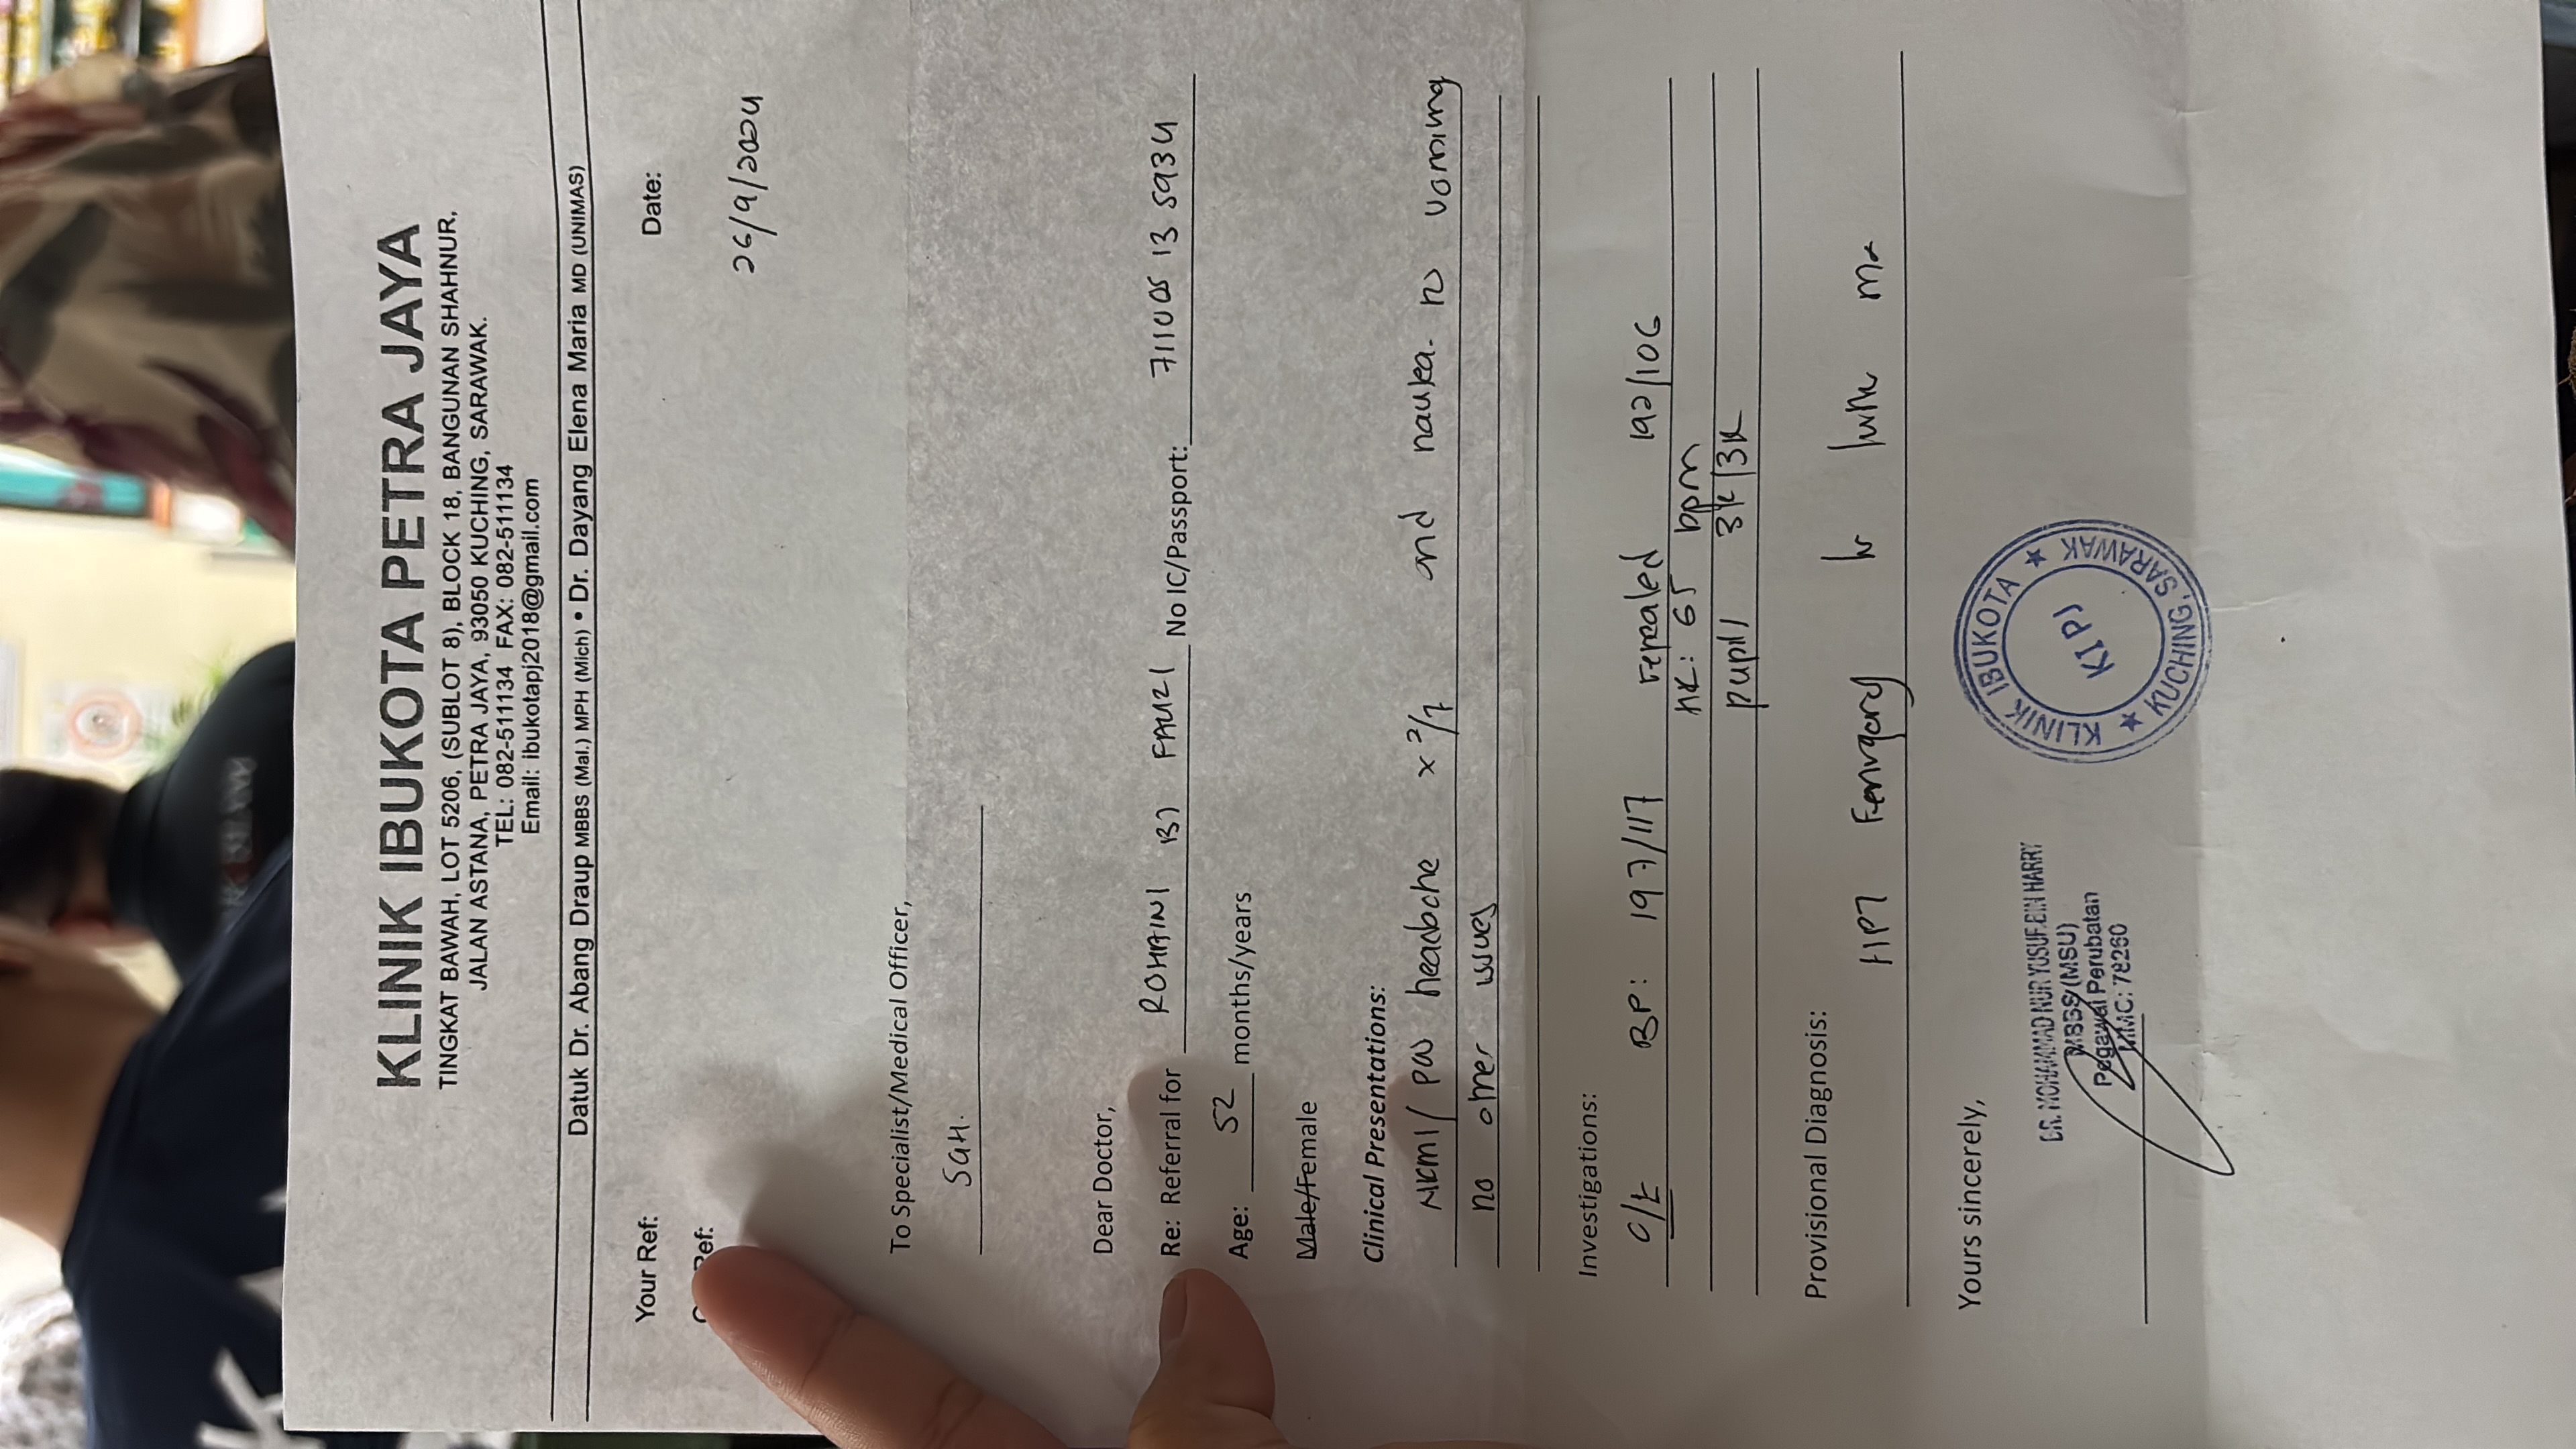 KLINIK IBUKOTA PETRA JAYA
TINGKAT BAWAH, LOT 5206, (SUBLOT 8), BLOCK 18, BANGUNAN SHAHNUR,
JALAN ASTANA, PETRA JAYA, 93050 KUCHING, SARAWAK.
TEL: 082-511134 FAX: 082-511134
Email: ibukotapj2018@gmail.com
Datuk Dr. Abang Draup MBBS (Mal.) MPH (Mich) • Dr. Dayang Elena Maria MD (UNIMAS)
Your Ref: Date:
Ref:
26/9/2024
To Specialist/Medical Officer,
SGH.
Dear Doctor,
Re: Referral for ROHAINI BT FAUZI No IC/Passport: 711005 13 5934
Age: 52 months/years
Male/Female
Clinical Presentations:
NKMI/ PW headache x 2/7 and nausea. no vomiting
no other issues
Investigations:
O/E BP: 197/117 repeated 192/106
HR: 65 bpm
pupil 3R/3R
Provisional Diagnosis:
HPT
Yours sincerely,
DR. MOHAMMAD NUR YUSUF BIN HARRY
MBBS (MSU)
Pegawai Perubatan
MMC: 78260
KLINIK IBUKOTA
KIPJ
KUCHING, SARAWAK